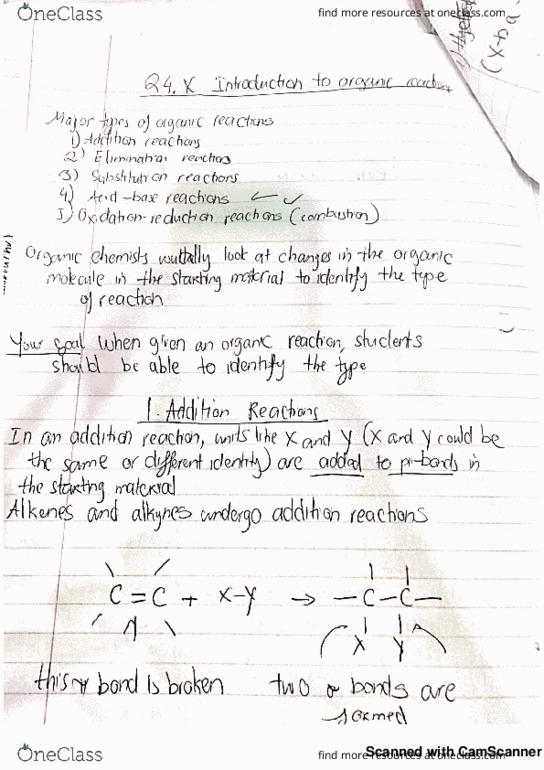 OneClass
find more resources at oneclass.com
(x-ba
Q4.X Introduction to organic reaction
Major types of organic reactions
1) Addition reactions
2) Elimination reactions
3) Substitution reactions
4) Acid-base reactions
5) Oxidation-reduction reactions (combustion)
Organic chemists usually look at changes in the organic
molecule in the starting material to identify the type
of reaction
Your goal when given an organic reaction, students
should be able to identify the type
1. Addition Reactions
In an addition reaction, units like X and Y (X and Y could be
the same or different identity) are added to pi-bonds in
the starting material
Alkenes and alkynes undergo addition reactions
C=C + X-Y → -C-C-
X Y
this π bond is broken two σ bonds are
formed
OneClass
find more resources at oneclass.com
Scanned with CamScanner